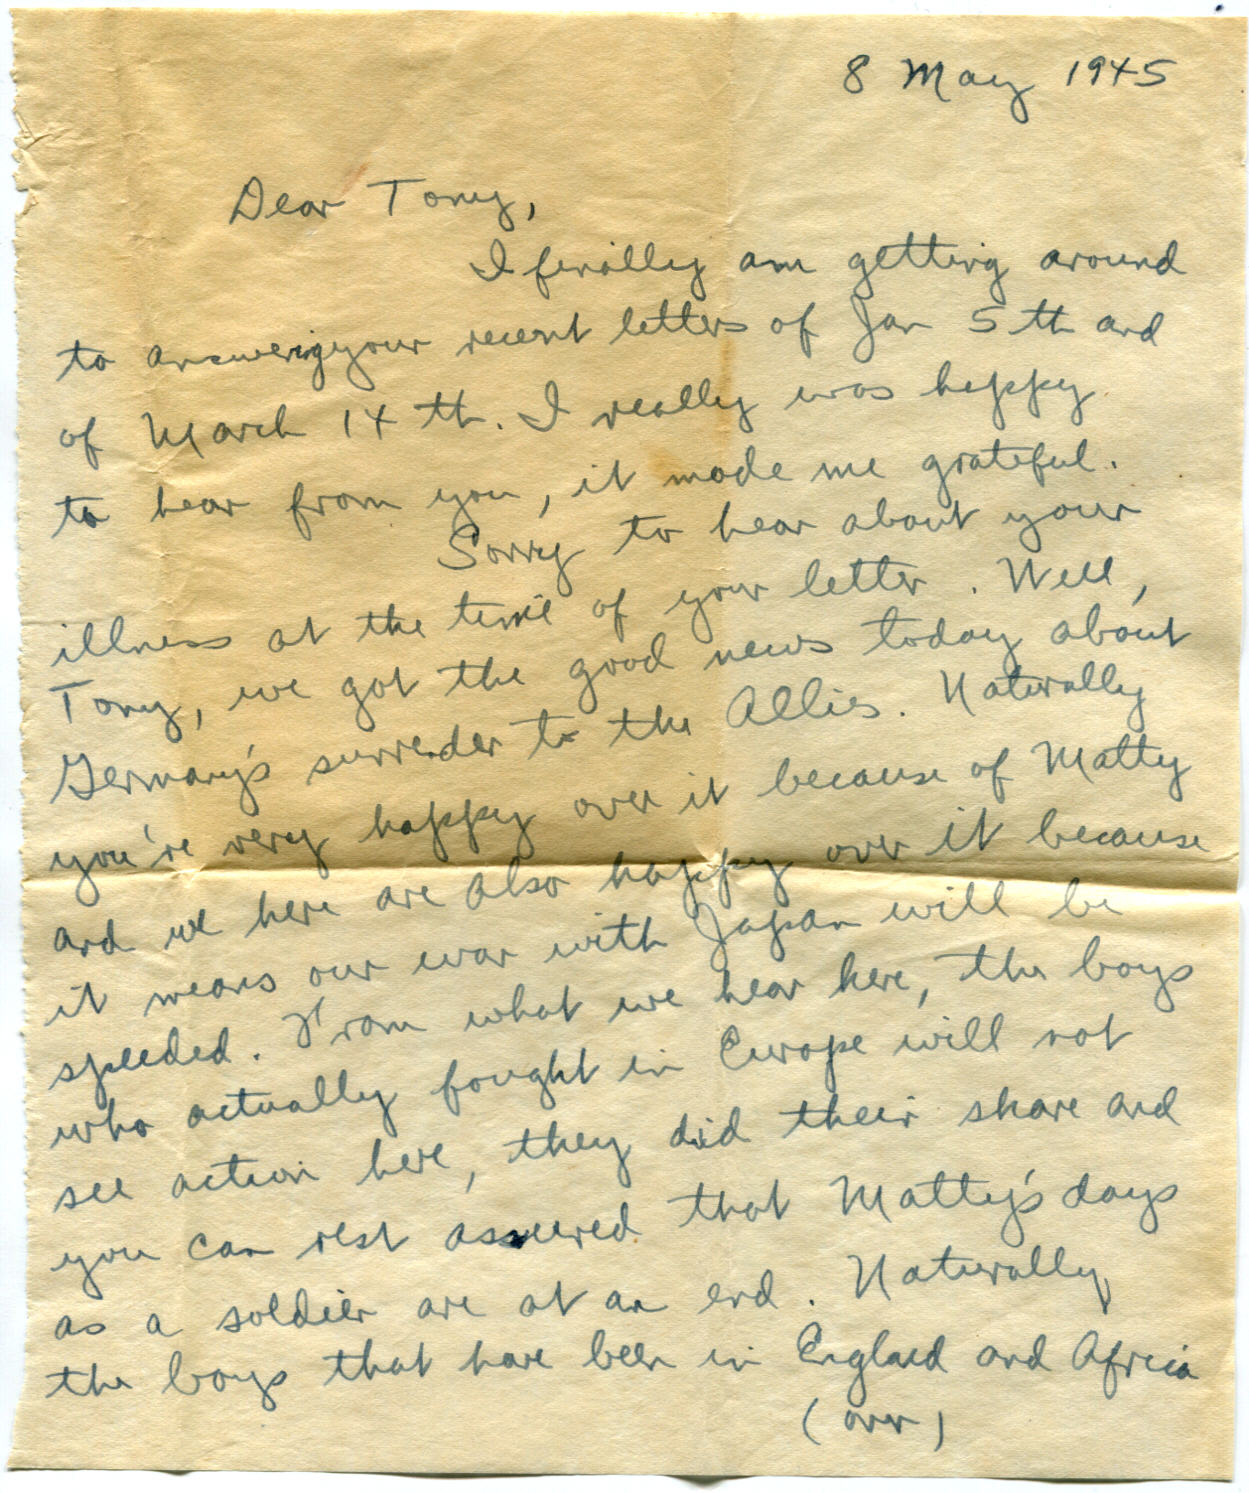 8 May 1945
Dear Tony,
I finally am getting around
to answering your recent letters of Jan 5th and
of March 14th. I really was happy
to hear from you, it made me grateful.
Sorry to hear about your
illness at the time of your letter. Well,
Tony, we got the good news today about
Germany's surrender to the Allies. Naturally
you're very happy over it because of Matty
and we here are also happy over it because
it means our war with Japan will be
speeded. From what we hear here, the boys
who actually fought in Europe will not
see action here, they did their share and
you can rest assured that Matty's days
as a soldier are at an end. Naturally,
the boys that have been in England and Africa
(over)